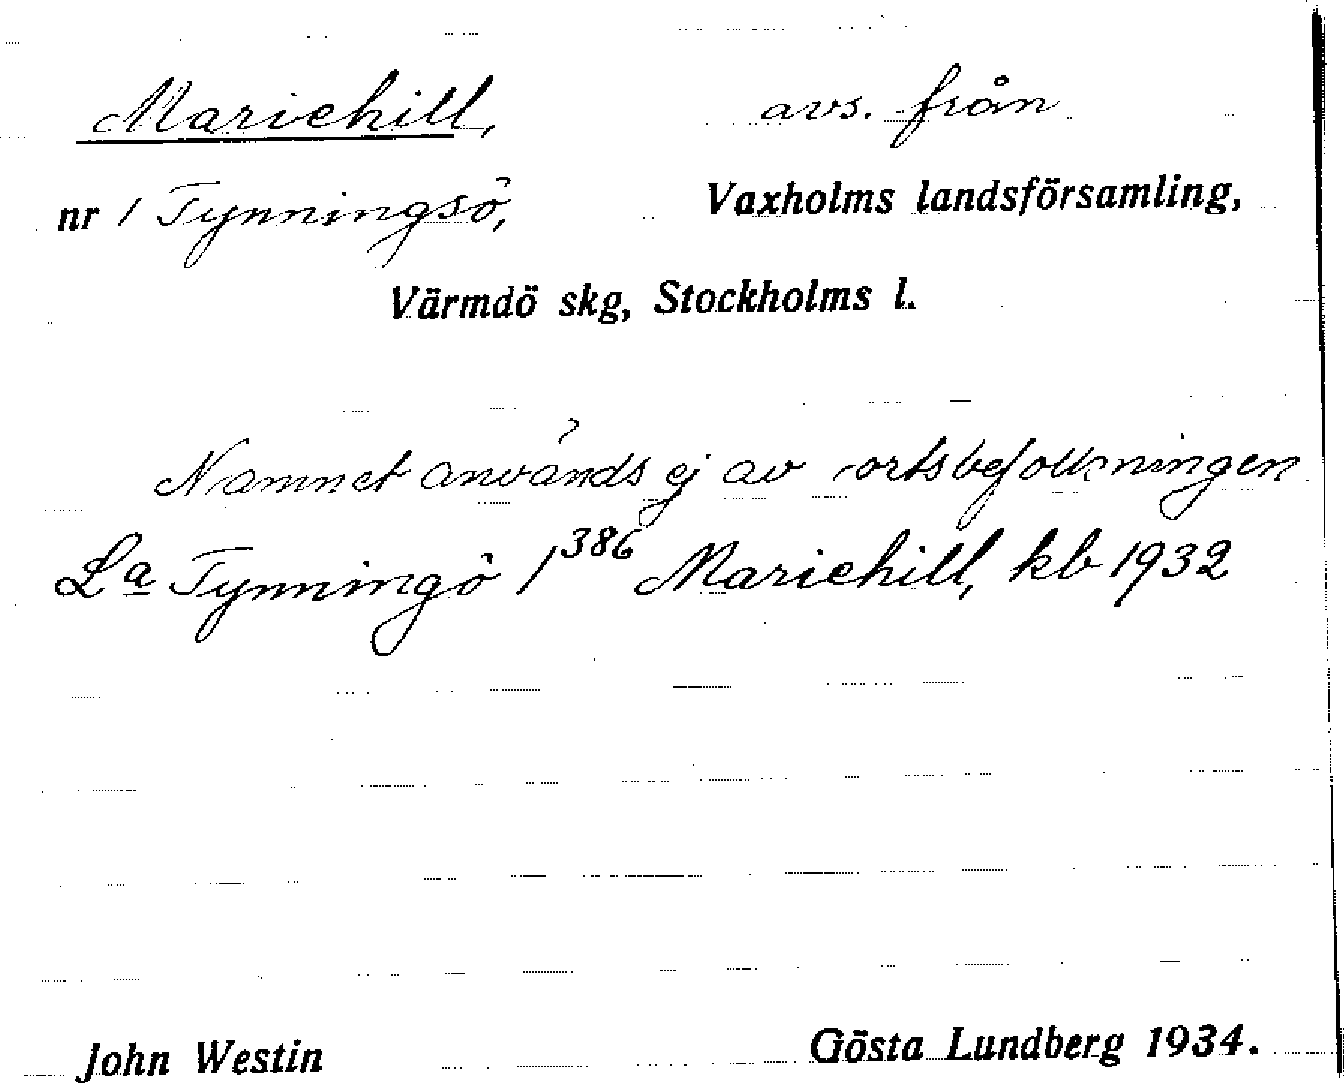 Mariehill, avs. från
nr 1 Tynningsö, Vaxholms landsförsamling,
Värmdö skg, Stockholms l.
Namnet används ej av ortsbefolkningen
La Tynningö 1 386 Mariehill, kb 1932
John Westin Gösta Lundberg 1934.